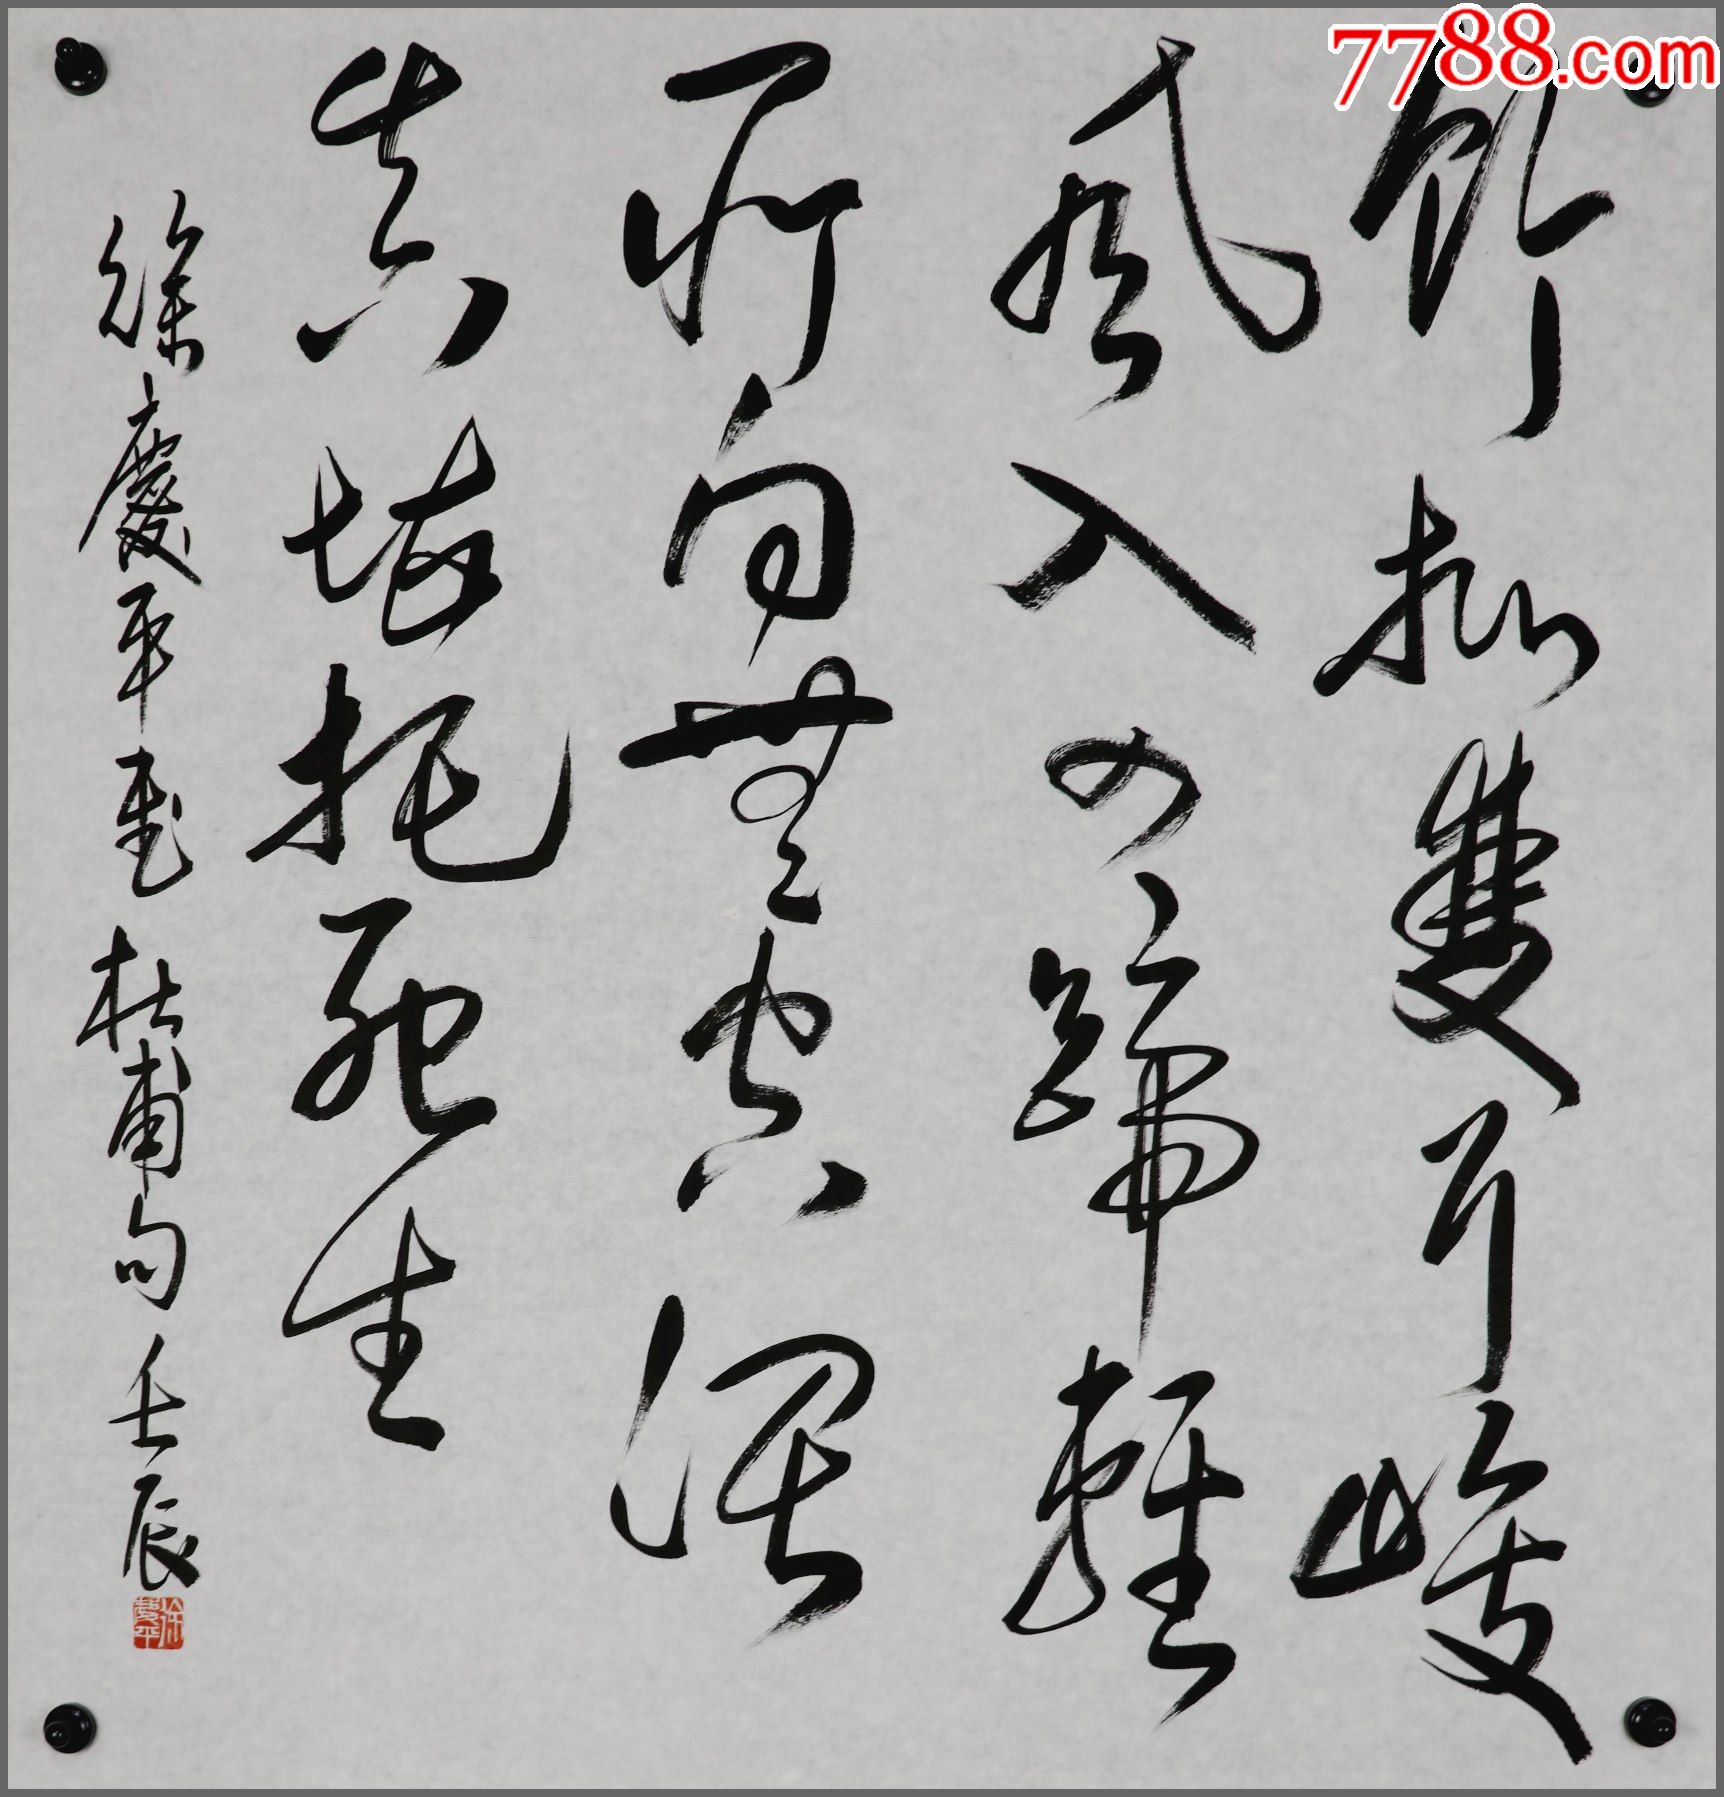 7788.com
竹批雙耳峻
風入四蹄輕
所向無空濶
真堪托死生
徐慶平書杜甫句壬辰
徐慶平